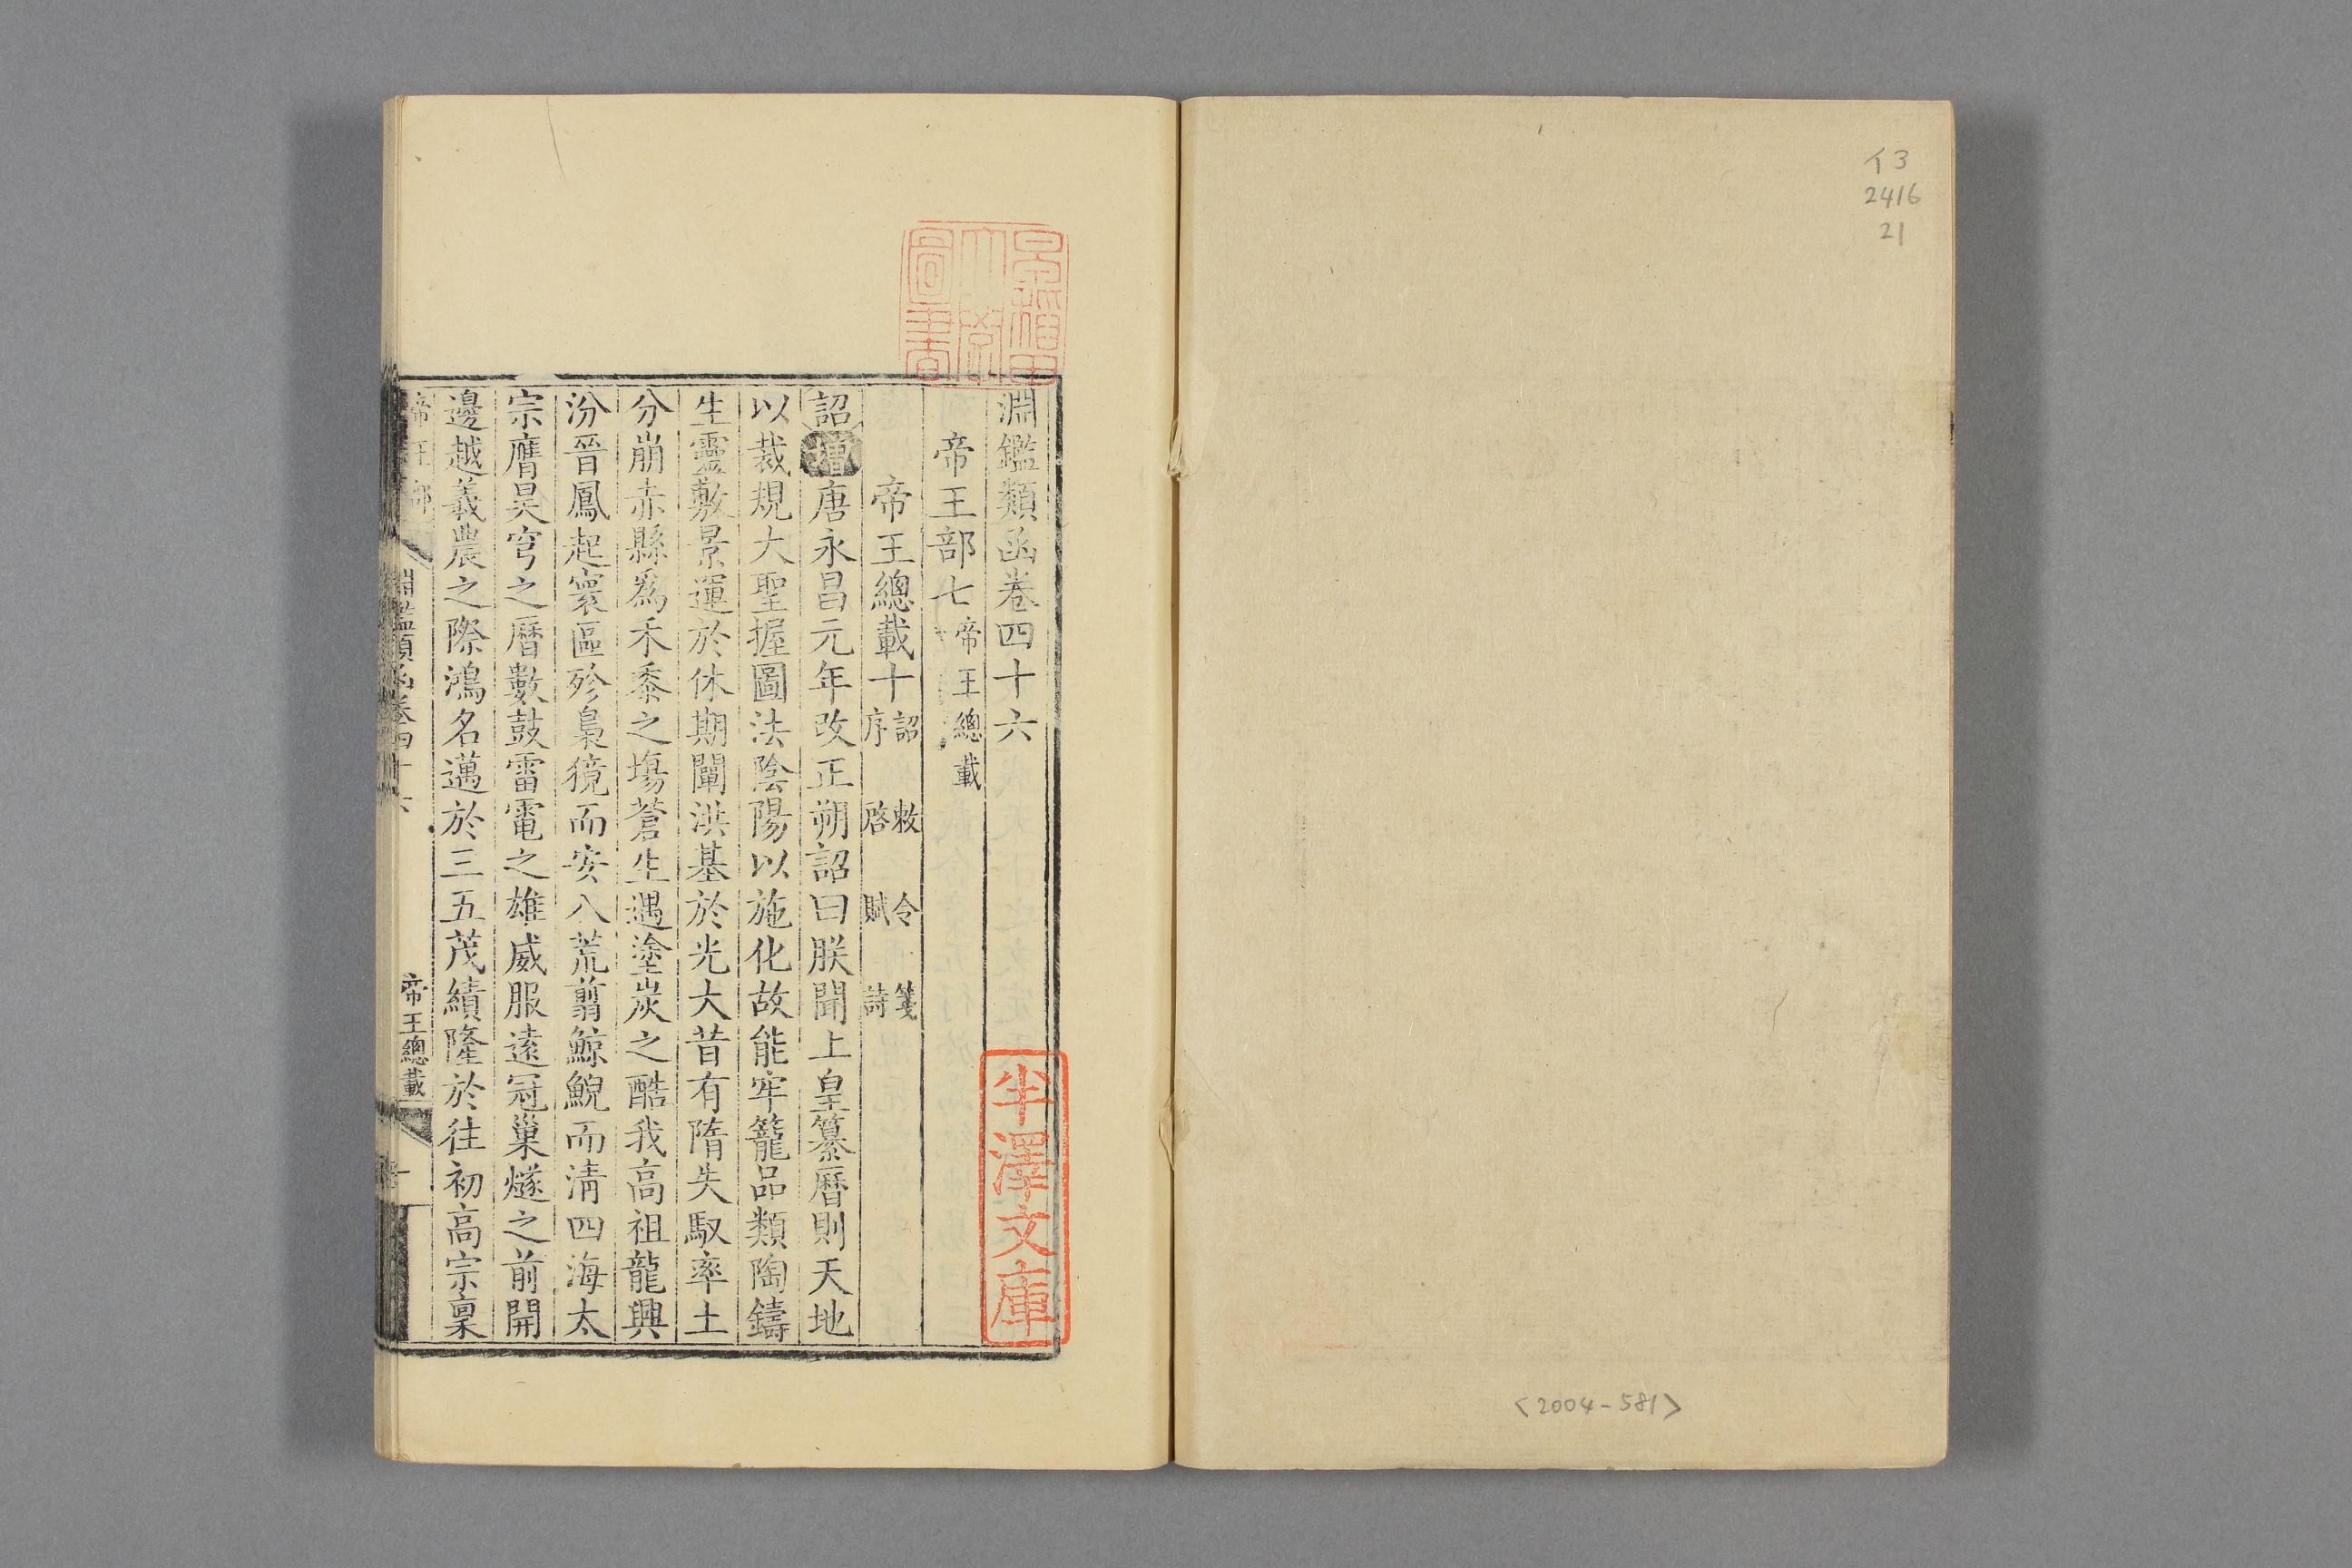 イ3
2416
21
<2004-581>
淵鑑類函卷四十六
帝王部七帝王總載
帝王總載十詔 敕 令 箋
序 啓 賦 詩
詔增唐永昌元年改正朔詔曰朕聞上皇纂曆則天地
以裁規大聖握圖法陰陽以施化故能牢籠品類陶鑄
生靈敷景運於休期闡洪基於光大昔有隋失馭率土
分崩赤縣爲禾黍之塲蒼生遇塗炭之酷我高祖龍興
汾晉鳳起寰區殄梟獍而安八荒翦鯨鯢而清四海太
宗膺昊穹之曆數鼓雷電之雄威服遠冠巢燧之前開
邊越羲農之際鴻名邁於三五茂績隆於往初高宗稟
帝王部 淵鑑類函卷四十六 帝王總載 一
早稲田大學圖書
半澤文庫